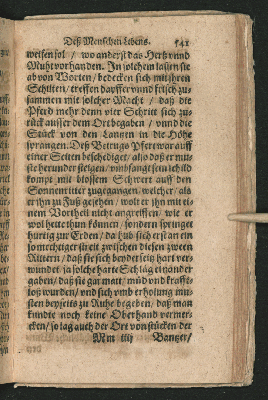 Deß Menschen Lebens. 541
weisen sol / wo anderst das Hertz vnd
Muht vorhanden. In solchem lassen sie
ab von Worten / bedecken sich mit ihren
Schilten / treffen dapffer vnnd frisch zu-
sammen mit solcher Macht / daß die
Pferd mehr denn vier Schritt sich zu-
rück ausser dem Ort begaben / vnnd die
Stück von den Lantzen in die Höhe
sprangen. Deß Betrugs Pfert war auff
einer Seiten beschediget / also daß er mu-
ste herunder steigen / vmbfangt sein schild
kompt mit blossem Schwert auff den
Sonnenritter zugegangen, welcher / als
er ihn zu Fuß gesehen / wolt er ihn mit ei-
nem Vortheil nicht angreiffen / wie er
wol hette thun können / sondern springet
hurtig zu Erden / da hub sich erst an ein
so mechtiger streit zwischen diesen zween
Rittern / daß sie sich beyderseitz hart ver-
wundet ja solche harte Schläg einander
gaben / daß sie gar matt / müd vnd krafft-
loß wurden / vnd sich vmb erholung mu-
sten beyseits zu Ruhe begeben / daß man
kundte noch keine Oberhand vermer-
cken / so lag auch der Ort von stücken der
Mm iiij Pantzer /